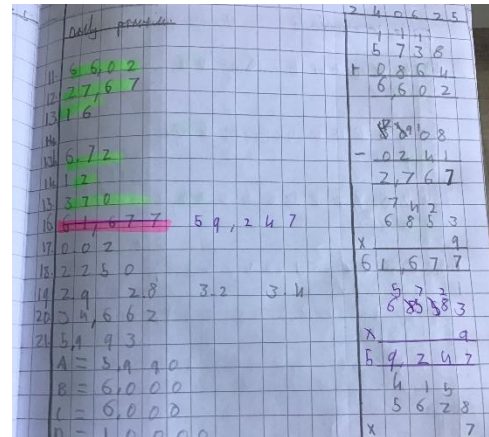 11. 6,602
12. 27,67
13. 16
14.
13. 6.72
14. 12
15. 370
16. 61,677 59,247
17. 002
18. 2250
19. 2.9 2.8 3.2 3.4
20. 34,662
21. 5.9 93
A = 5,990
B = 6,000
C = 6,000
D = 10000
240625
111
5738
+ 0864
6,602
- 0241
2,767
742
6853
x 9
61,677
572
x 9
59,247
415
5628
x 7